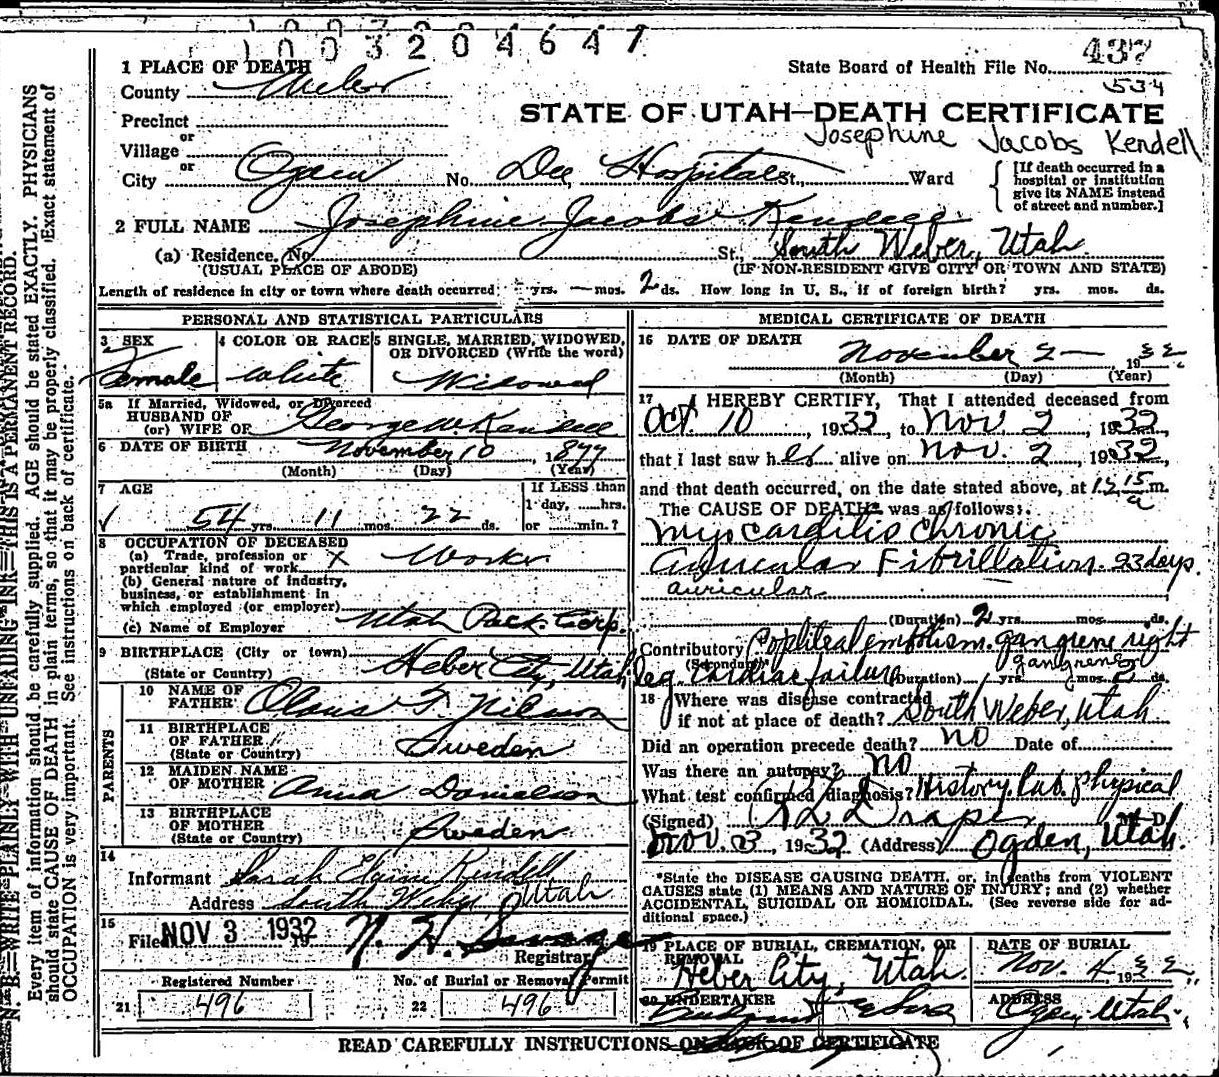 1003204647
437
1 PLACE OF DEATH
State Board of Health File No.
534
County Weber
STATE OF UTAH—DEATH CERTIFICATE
Precinct
Josephine Jacobs Kendell
or
Village
or
City Ogden No. Dee Hospital St., Ward
[If death occurred in a hospital or institution give its NAME instead of street and number.]
2 FULL NAME Josephine Jacobs Kendell
(a) Residence. No. St., South Weber, Utah
(USUAL PLACE OF ABODE) (IF NON-RESIDENT GIVE CITY OR TOWN AND STATE)
Length of residence in city or town where death occurred yrs. — mos. 2 ds. How long in U. S., if of foreign birth? yrs. mos. ds.
PERSONAL AND STATISTICAL PARTICULARS
3 SEX 4 COLOR OR RACE 5 SINGLE, MARRIED, WIDOWED, OR DIVORCED (Write the word)
Female White Widowed
5a If Married, Widowed, or Divorced
HUSBAND OF
(or) WIFE OF George W. Kendell
6 DATE OF BIRTH November 10, 1877
(Month) (Day) (Year)
7 AGE If LESS than
1 day, ......hrs.
54 yrs. 11 mos. 22 ds. or ......min.?
8 OCCUPATION OF DECEASED
(a) Trade, profession or
particular kind of work X Worker
(b) General nature of industry,
business, or establishment in
which employed (or employer)
(c) Name of Employer Utah Pack. Corp.
9 BIRTHPLACE (City or town)
(State or Country) Heber City, Utah
PARENTS
10 NAME OF
FATHER Olaus T. Nilson
11 BIRTHPLACE
OF FATHER
(State or Country) Sweden
12 MAIDEN NAME
OF MOTHER Anna Danielson
13 BIRTHPLACE
OF MOTHER
(State or Country) Sweden
14
Informant Sarah Kendell
Address South Weber, Utah
15
Filed NOV 3 1932 19 N. H. Savage
Registrar
Registered Number No. of Burial or Removal Permit
21 496 22 496
MEDICAL CERTIFICATE OF DEATH
16 DATE OF DEATH
November 2— 1932
(Month) (Day) (Year)
17 I HEREBY CERTIFY, That I attended deceased from
Oct. 10, 1932, to Nov 2, 1932,
that I last saw her alive on Nov. 2, 1932,
and that death occurred, on the date stated above, at 12 15 a m.
The CAUSE OF DEATH* was as follows:
Myocarditis chronic
Auricular Fibrillation. 23 days.
auricular
(Duration) 2 yrs. mos. ds.
Contributory Popliteal embolism. gangrene right
(Secondary) gangrene
leg. Cardiac failure (Duration) yrs. mos. ds.
18 Where was disease contracted
if not at place of death? South Weber, Utah
Did an operation precede death? no Date of
Was there an autopsy? no
What test confirmed diagnosis? History, lab. physical
(Signed) Draper M. D.
Nov. 3, 1932 (Address) Ogden, Utah.
*State the DISEASE CAUSING DEATH, or, in deaths from VIOLENT
CAUSES state (1) MEANS AND NATURE OF INJURY; and (2) whether
ACCIDENTAL, SUICIDAL OR HOMICIDAL. (See reverse side for ad-
ditional space.)
19 PLACE OF BURIAL, CREMATION, OR
REMOVAL DATE OF BURIAL
Heber City, Utah Nov. 4 1932
20 UNDERTAKER ADDRESS
Ogden, Utah
READ CAREFULLY INSTRUCTIONS ON BACK OF CERTIFICATE
N. B.—WRITE PLAINLY WITH UNFADING INK—THIS IS A PERMANENT RECORD.
Every item of information should be carefully supplied. AGE should be stated EXACTLY. PHYSICIANS
should state CAUSE OF DEATH in plain terms, so that it may be properly classified. Exact statement of
OCCUPATION is very important. See instructions on back of certificate.